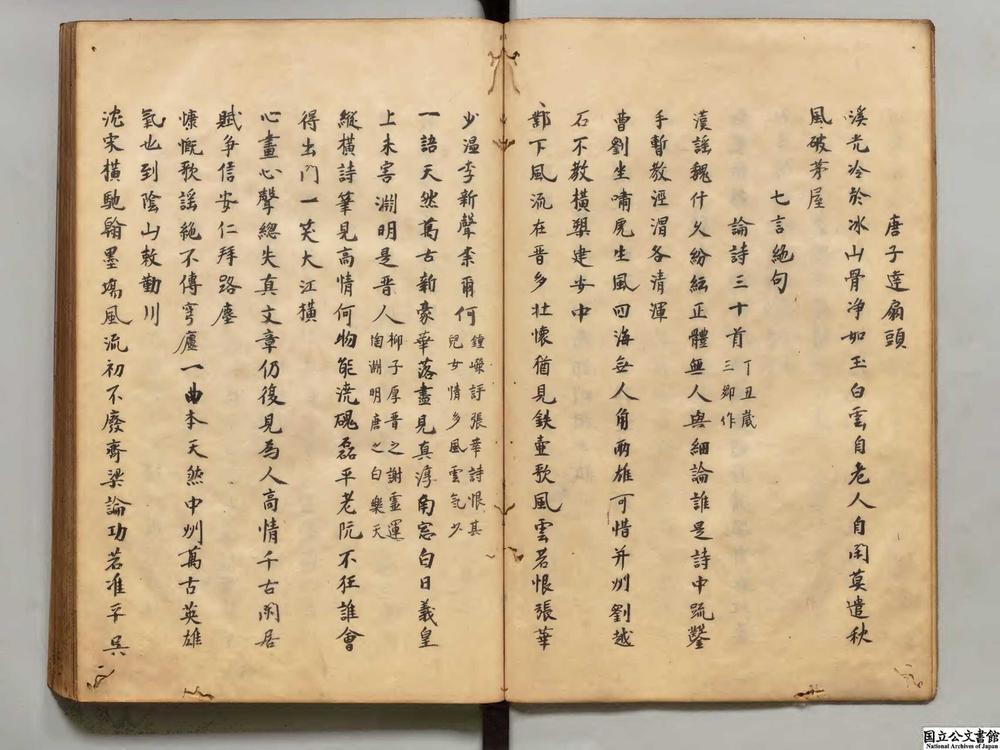 唐子達扇頭
溪光冷於冰山骨淨如玉白雲自老人自閑莫遣秋
風破茅屋
七言絕句
論詩三十首丁丑歲三鄉作
漢謠魏什久紛紜正體無人與細論誰是詩中疏鑿
手暫教涇渭各清渾
曹劉坐嘯虎生風四海無人角兩雄可惜并州劉越
石不教橫槊建安中
鄴下風流在晉多壯懷猶見鉄壺歌風雲若恨張華
少温李新聲柰爾何鍾嶸評張華詩恨其兒女情多風雲氣少
一語天然萬古新豪華落盡見真淳南窓白日羲皇
上未害淵明是晉人柳子厚晉之謝靈運陶淵明唐之白樂天
縱橫詩筆見高情何物能澆磈磊平老阮不狂誰會
得出門一笑大江橫
心畫心聲緫失真文章仍復見為人高情千古閑居
賦争信安仁拜路塵
慷慨歌謠絶不傳穹廬一曲本天然中州萬古英雄
氣也到陰山敕勒川
沈宋橫馳翰墨塲風流初不廢齊梁論功若准平吳
国立公文書館
National Archives of Japan